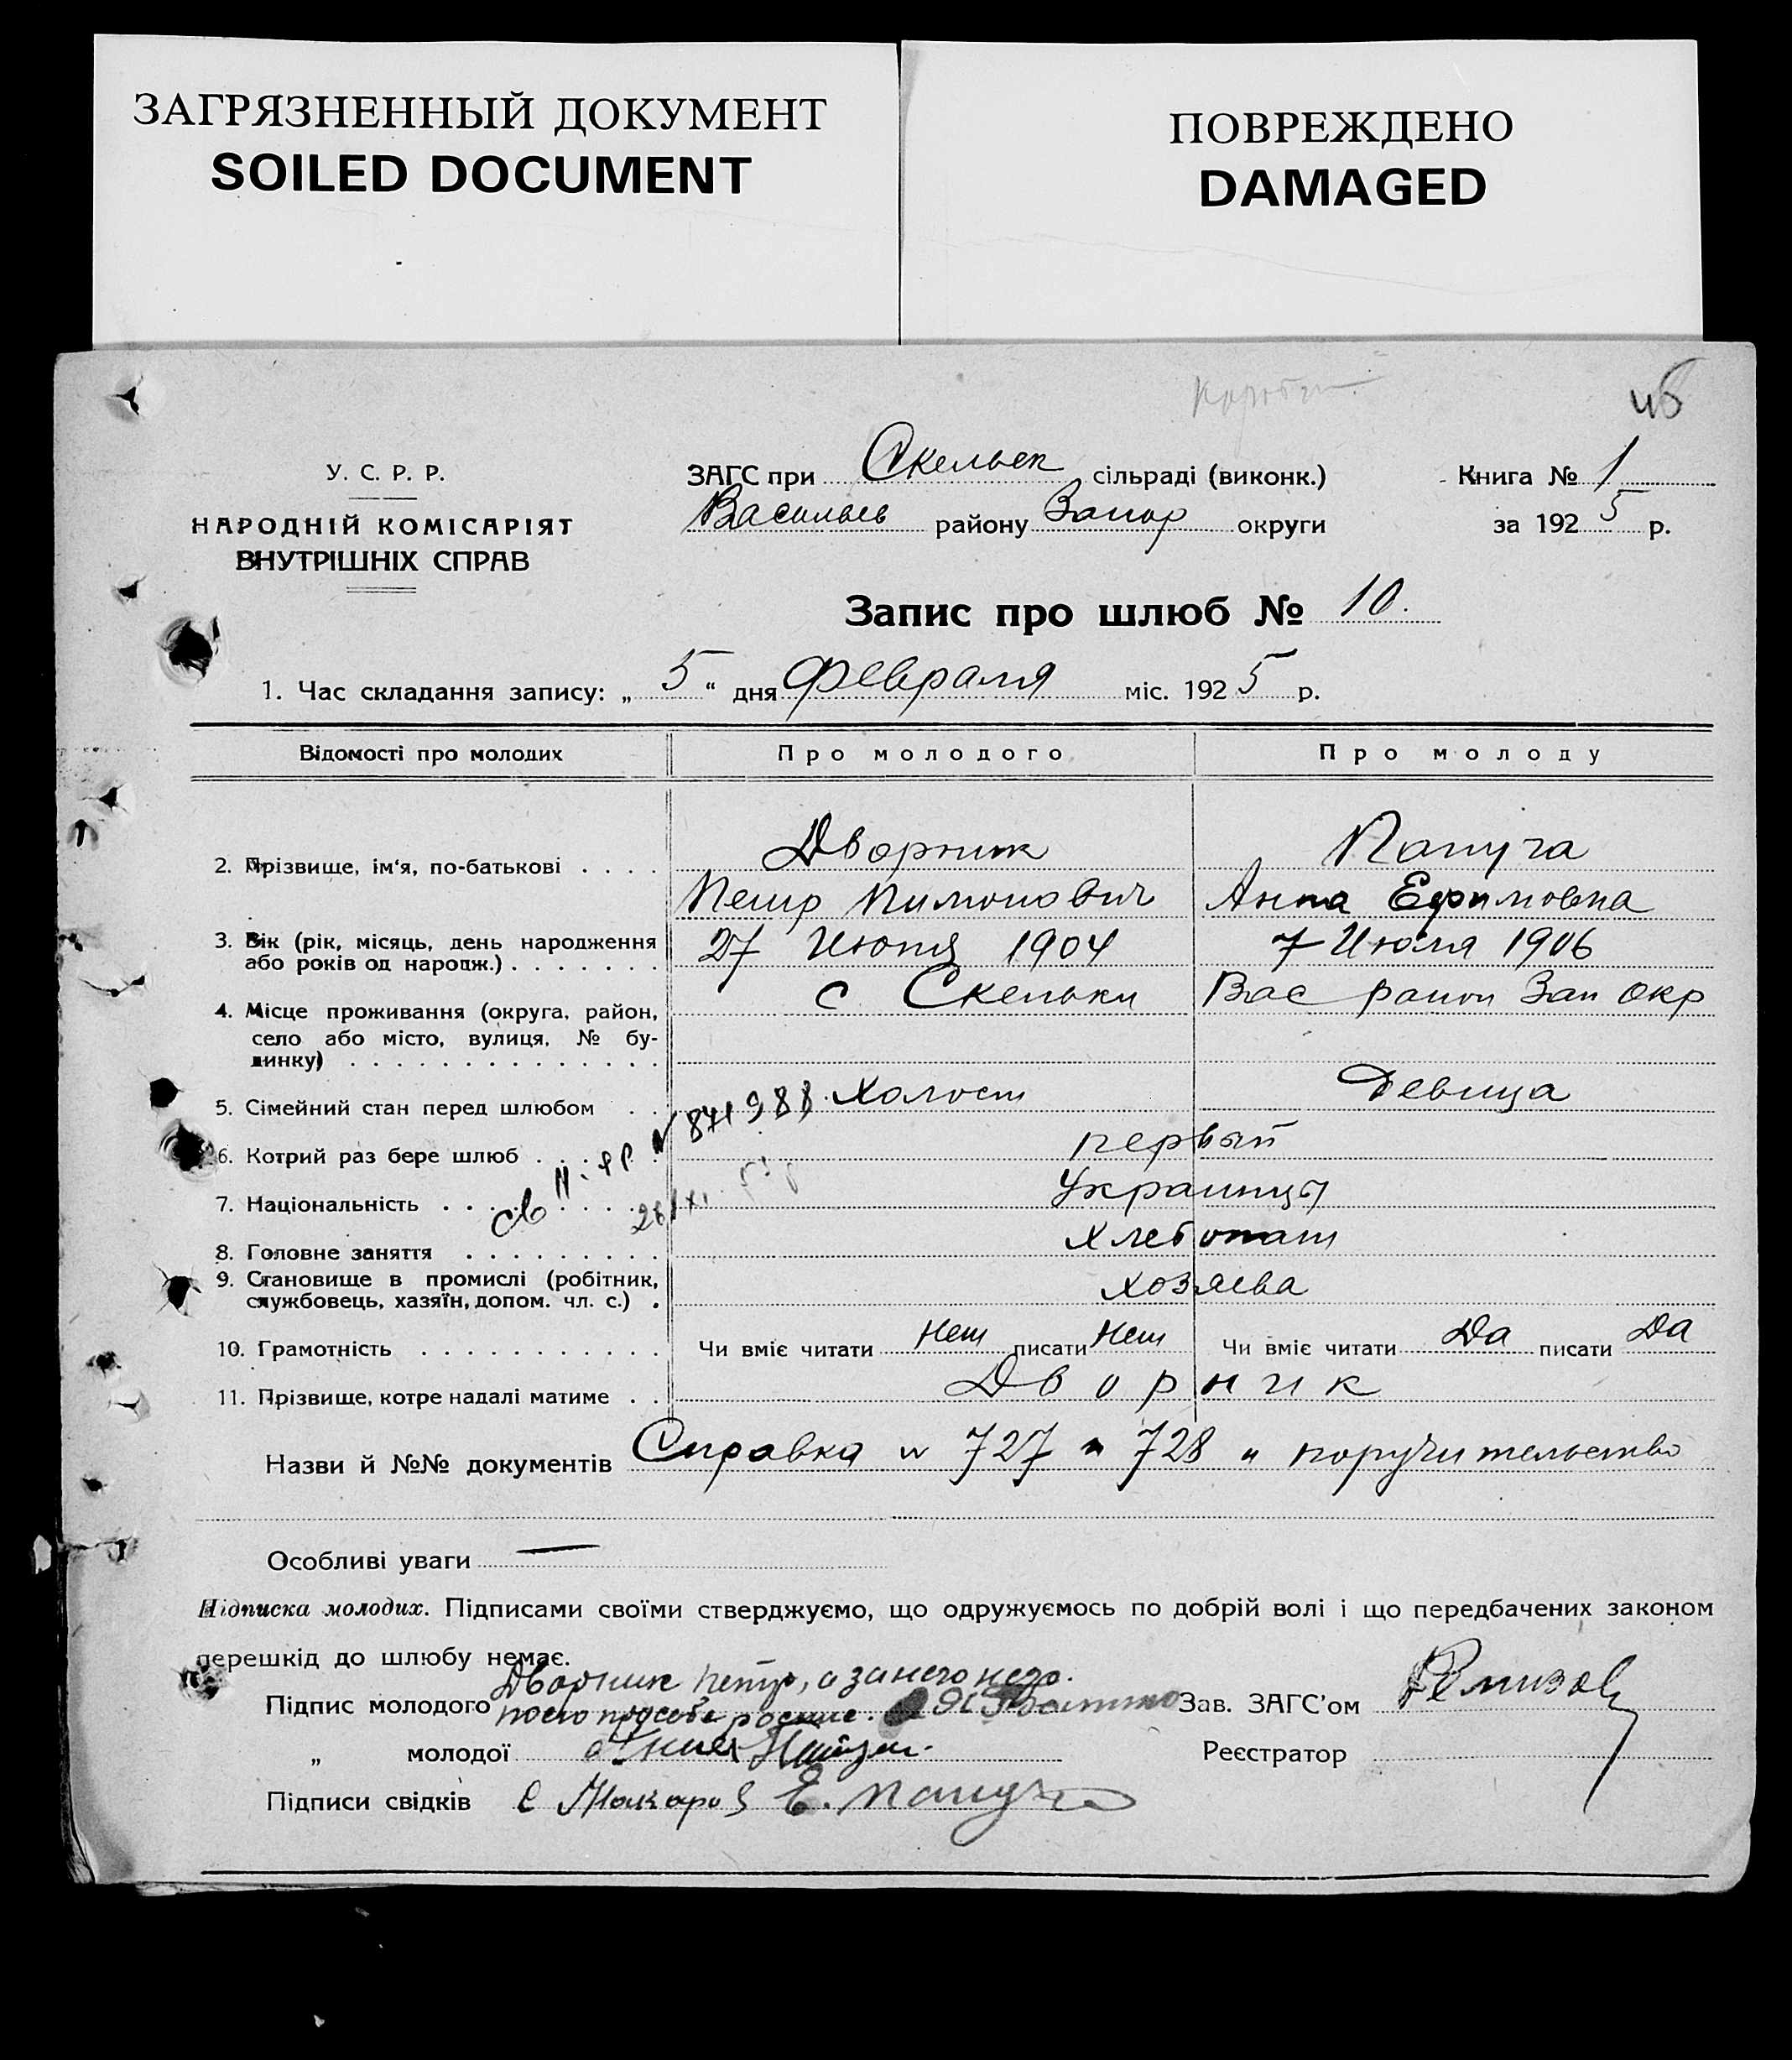 ЗАГРЯЗНЕННЫЙ ДОКУМЕНТ
SOILED DOCUMENT
ПОВРЕЖДЕНО
DAMAGED
У. С. Р. Р.
НАРОДНІЙ КОМІСАРІЯТ
ВНУТРІШНІХ СПРАВ
ЗАГС при Скельек сільраді (виконк.)
Васильев району Запор округи
Книга № 1
за 1925 р.
Запис про шлюб № 10.
1. Час складання запису: „ 5 “ дня Февраля міс. 1925 р.
Відомості про молодих Про молодого Про молоду
Дворник Папуча
2. Прізвище, ім‘я, по-батькові . . . .
Петр Пимонович Анна Ефимовна
3. Вік (рік, місяць, день народження 27 Июня 1904 7 Июля 1906
або років од народж.) . . . . . . .
с Скельки Вас район Зап Окр
4. Місце проживання (округа, район,
село або місто, вулиця, № бу-
динку) . . . . . . . . . . . . . .
5. Сімейний стан перед шлюбом . . Холост Девица
№ 871988
6. Котрий раз бере шлюб . . . . . . первый
7. Національність . . . . . . . . . Украинцы
8. Головне заняття . . . . . . . . . Хлебопаш
9. Становище в промислі (робітник,
службовець, хазяїн, допом. чл. с.) . хозяева
10. Грамотність . . . . . . . . . . . Чи вміє читати Нет писати Нет Чи вміє читати Да писати Да
11. Прізвище, котре надалі матиме . . Дворник
Назви й №№ документів Справка № 727 и 728 и поручительство
Особливі уваги —
Підписка молодих. Підписами своїми стверджуємо, що одружуємось по добрій волі і що передбачених законом
перешкід до шлюбу немає.
Дворник Петр, а за него него
Підпис молодого Зав. ЗАГС’ом Ремизов
„ молодої Анна Реєстратор
Підписи свідків С Макаров Е. Папуча